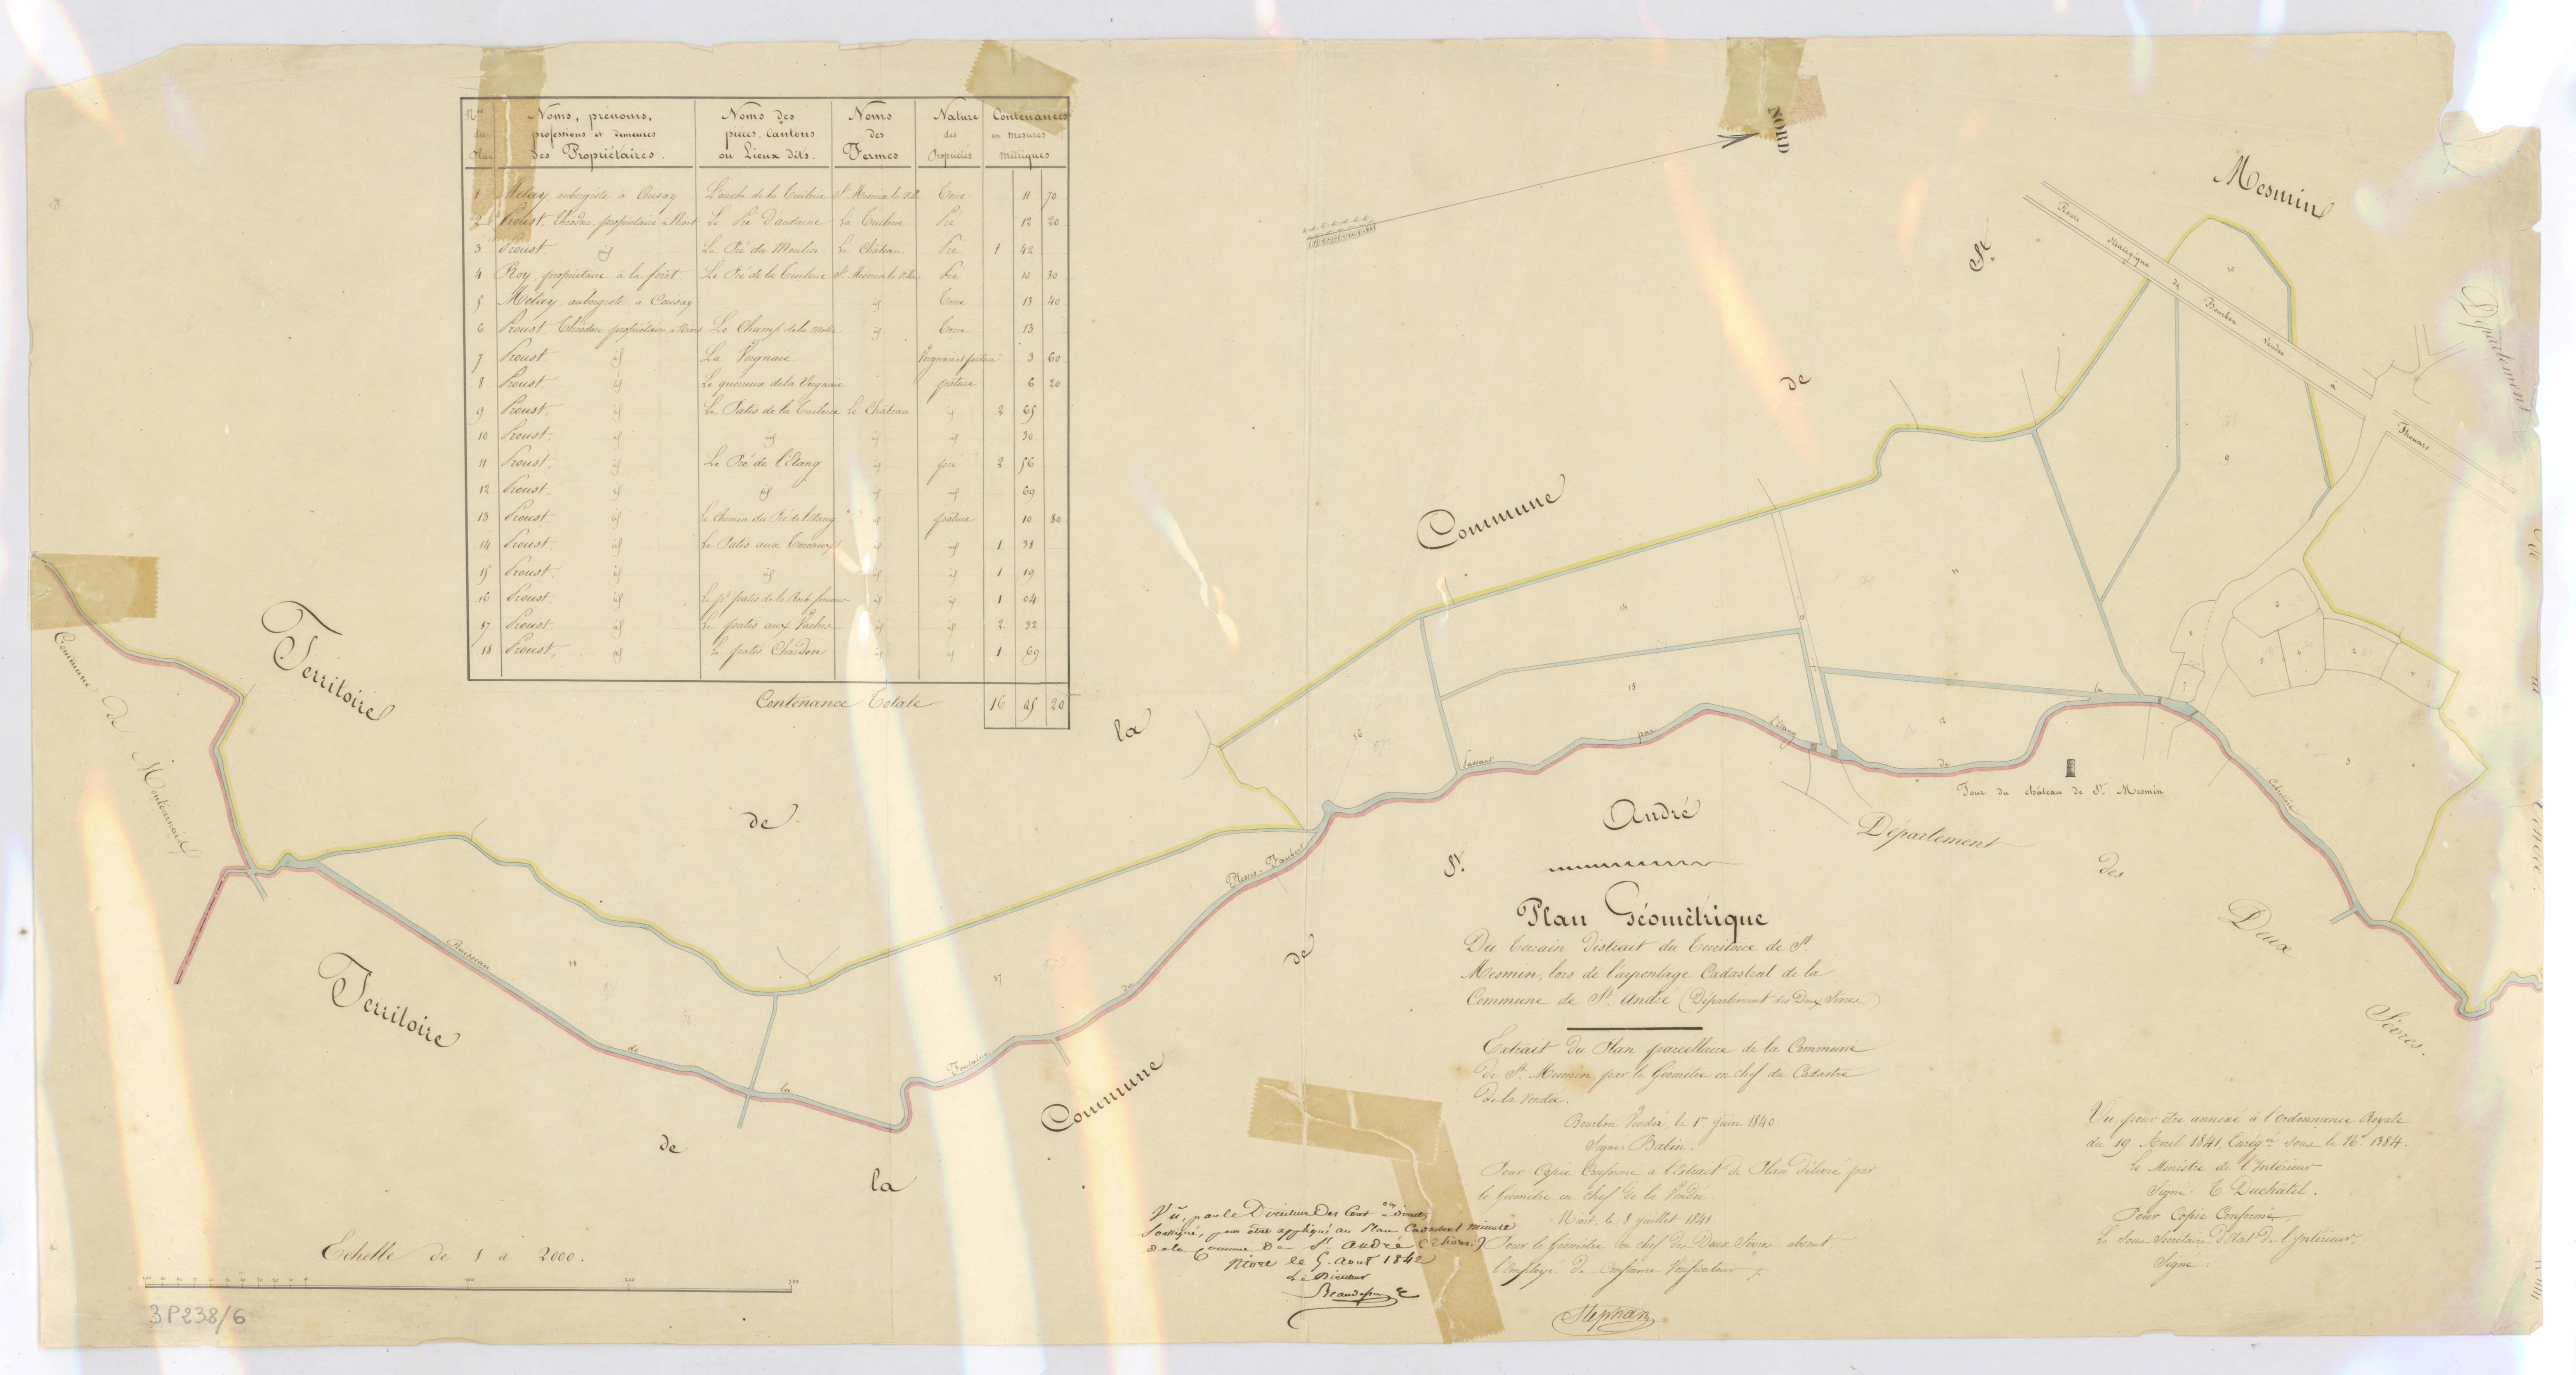 Nos du Plan | Noms, prénoms, professions et demeures des Propriétaires. | Noms des pièces, Cantons ou Lieux dits. | Noms des Fermes | Nature des Propriétés | Contenances en mesures métriques
1 Mélay, aubergiste à Cerisay L'ouche de la Tuilerie St Mesmin la Ville Terre 11 70
2 Proust, Théodore, propriétaire à Niort Le Pré La Tuilerie Pré 12 20
3 Proust, id Le Pré du Moulin Le Château Pré 1 42
4 Roy, propriétaire à la forêt Le Pré de la Tuilerie St Mesmin la Ville Pré 10 30
5 Mélay, aubergiste à Cerisay id Terre 13 40
6 Proust Théodore propriétaire à Niort Le Champ de la Motte id Terre 13
7 Proust. id La Vergnaie 3 60
8 Proust. id de la Vergnaie pâture 6 20
9 Proust. id Le Patis de la Tuilerie Le Château id 2 65
10 Proust. id id id id 30
11 Proust. id Le Pré de l'Etang id pré 2 56
12 Proust. id id id id 69
13 Proust. id Le Chemin du Pré de l'étang id pâture 10 80
14 Proust. id Le Patis aux Toreaux id id 1 38
15 Proust. id id id id 1 19
16 Proust. id Le pt patis de la id id 1 04
17 Proust id Le patis aux Vaches id id 2 32
18 Proust, id Le patis Chardon id id 1 69
Contenance Totale 16 45 20
NORD
Mesmin
St
de
Commune
la
de
Territoire
Route Stratégique de Bourbon Vendée à Thouars
Département
de la Vendée.
Commune de Montournais
Ruisseau de la Fontaine du Plessis-Jaubert passant par l'Etang de la
Tour du château de St Mesmin
Département des Deux Sèvres.
Territoire
de
la
Commune
de
St
André
Plan Géométrique
Du terrain distrait du Territoire de St
Mesmin, lors de l'arpentage Cadastral de la
Commune de St André (Département des Deux Sèvres)
Extrait du Plan parcellaire de la Commune
de St Mesmin par le Géomètre en chef du Cadastre
de la Vendée.
Bourbon Vendée, le 1er juin 1840
Signé Babin.
Pour Copie Conforme à l'Extrait de Plan délivré par
le Géomètre en chef de la Vendée.
Niort, le 8 juillet 1841.
Pour le Géomètre en chef des Deux Sèvres absent,
l'Employé de Confiance Vérificateur
Stephan
Vu, par le Directeur des Contons directes
Soussigné, pour être appliqué au Plan Cadastral minute
de la Commune de St André
Niort le 5 août 1842
Le Directeur
Vu pour être annexé à l'ordonnance Royale
du 19 Avril 1841, Enregé sous le No 1384.
Le Ministre de l'Intérieur
Signé: T. Duchatel.
Pour Copie Conforme,
Le Sous Secrétaire d'Etat de l'Intérieur,
Signé:
Echelle de 1 à 2000.
3P238/6